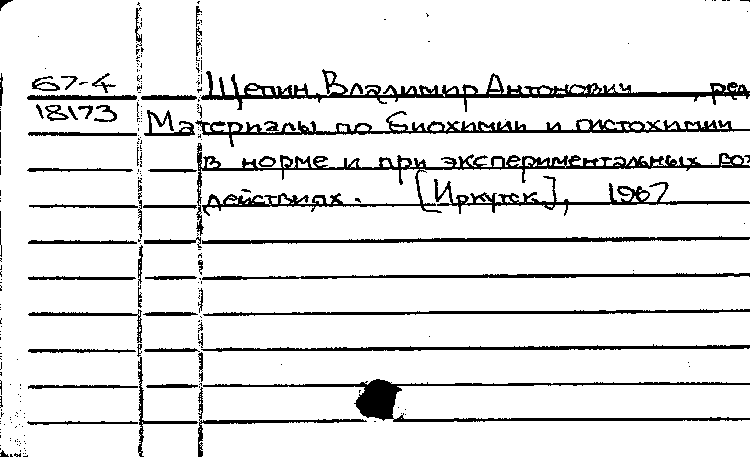 67-4 Щепин, Владимир Антонович, ред
18173 Материалы по биохимии и гистохимии
в норме и при экспериментальных воз
действиях. [Иркутск], 1967